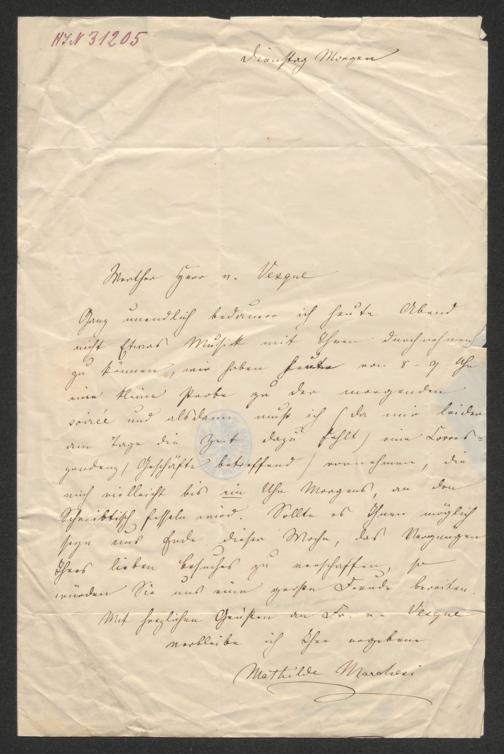 HIN 31205
Dienstag Morgen
Werther Herr v. Vesque
Ganz unendlich bedauere ich heute Abend
nicht Etwas Musik mit Ihnen durchnehmen
zu können, wir haben heute von 8 - 9 Uhr
eine kleine Probe zu der morgenden
soirée und alsdann muß ich (da mir leider
am Tage die Zeit dazu fehlt) eine Corres-
pondenz, (Geschäfte betreffend) vornehmen, die
mich vielleicht bis ein Uhr Morgens, an den
Schreibtisch fesseln wird. Sollte es Ihnen möglich
seyn uns Ende dieser Woche, das Vergnügen
Ihres lieben Besuches zu verschaffen, so
würden Sie uns eine große Freude bereiten.
Mit herzlichen Grüßen an Fr. v. Vesque
verbleibe ich Ihre ergebene
Mathilde Marchesi